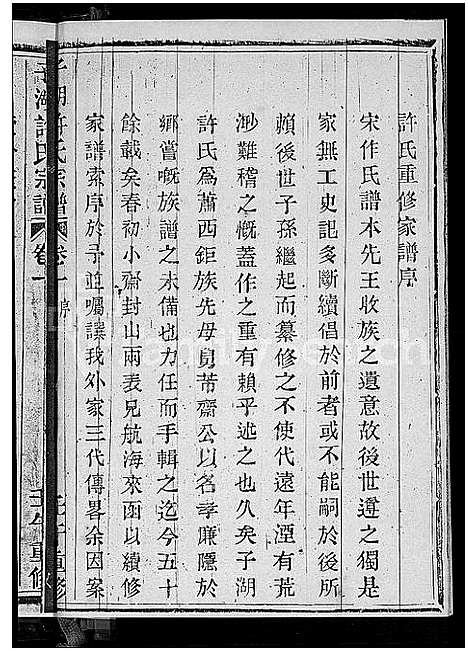 許氏重修家譜序
宋作氏譜本先王收族之遺意故後世遵之獨是
家無工史記多斷續倡於前者或不能嗣於後所
頼後世子孫繼起而纂修之不使代遠年湮有荒
渺難稽之慨蓋作之重有賴乎述之也久矣子湖
許氏為蕭西鉅族先母舅芾齋公以名孝廉隱於
鄉嘗嘅族譜之未備也力任而手輯之迄今五十
餘載矣春初小齋封山兩表兄航海來函以續修
家譜索序於予並囑譔我外家三代傳畧余因案
子湖許氏宗譜 卷一 序 壬午重修
子湖許氏宗譜 卷一 壬午重修